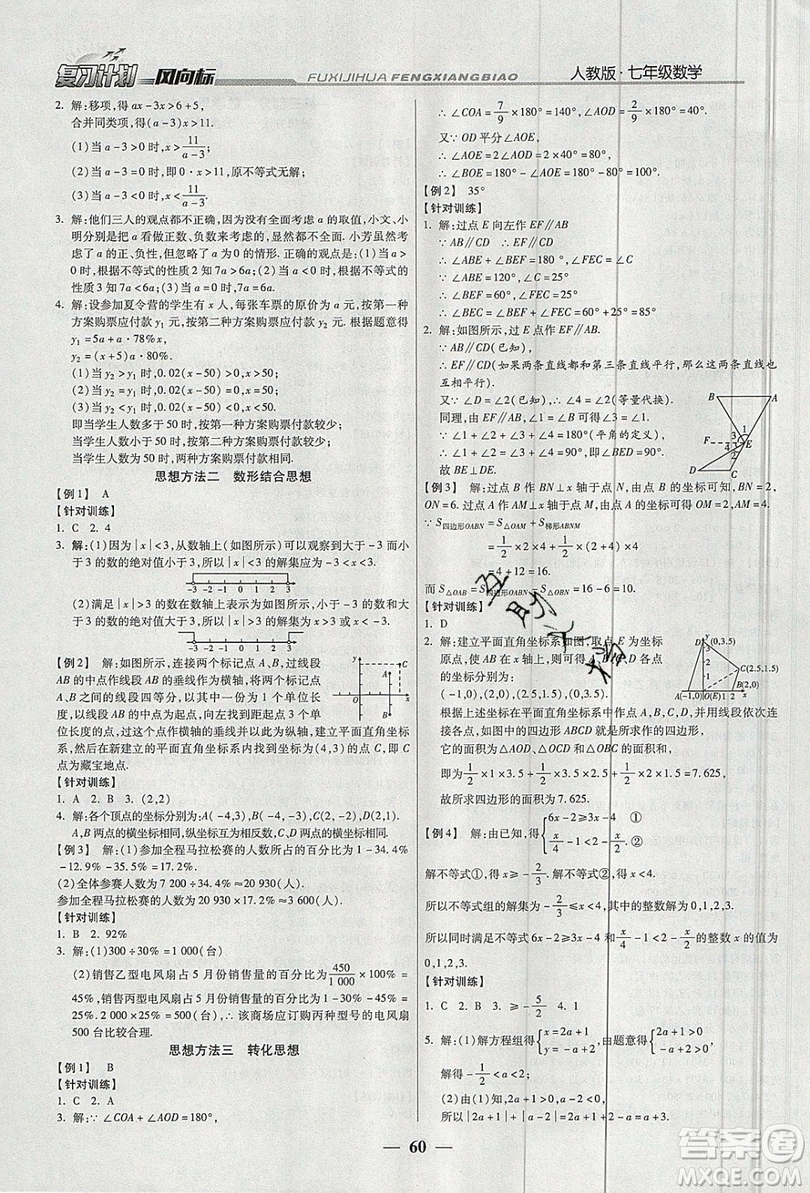 复习计划 风向标 FUXIJIHUA FENGXIANGBIAO 人教版·七年级数学
2. 解:移项,得 ax-3x>6+5,
合并同类项,得(a-3)x>11.
(1)当 a-3>0 时,x>11/(a-3);
(2)当 a-3=0 时,即 0·x>11,原不等式无解;
(3)当 a-3<0 时,x<11/(a-3).
3. 解:他们三人的观点都不正确,因为没有全面考虑 a 的取值,小文、小
明分别是把 a 看做正数、负数来考虑的,显然都不全面. 小芳虽然考
虑了 a 的正、负性,但忽视了 a=0 的情形. 正确的观点是:(1)当 a
>0 时,根据不等式的性质 2,有 7a>6a;(2)当 a<0 时,根据不等式
的性质 3,有 7a<6a;(3)当 a=0 时,7a=6a.
4. 解:设参加夏令营的学生有 x 人,每张车票的原价为 a 元,按第一种
方案购票应付款 y₁ 元,按第二种方案购票应付款 y₂ 元,根据题意得
y₁=5a+a·78%x,
y₂=(x+5)a·80%.
(1)当 y₂>y₁ 时,0.02(x-50)>0,x>50;
(2)当 y₂=y₁ 时,0.02(x-50)=0,x=50;
(3)当 y₂<y₁ 时,0.02(x-50)<0,x<50.
即当学生人数多于 50 时,按第一种方案购票付款较少;
当学生人数小于 50 时,按第二种方案购票付款较少;
当学生人数为 50 时,两种方案付款一样多.
思想方法二 数形结合思想
【例1】 A
【针对训练】
1. C 2. 4
3. 解:(1)因为|x|<3,从数轴上(如图所示)可以观察到大于-3 而小于
3 的数的绝对值小于 3,所以|x|<3 的解集应为-3<x<3.
-3 -2 -1 0 1 2 3
(2)满足|x|>3 的数在数轴上表示(如图所示),大于 3 或小于-3
的数的绝对值大于 3,所以|x|>3 的解集为 x>3 或 x<-3.
-3 -2 -1 0 1 2 3
【例2】 解:如图所示,连接两个标记点 A,B,找到
线段 AB 的中点,再找到线段 AB 被中点分成的两
条线段的中点,这样把线段 AB 四等分,以其中一
份的长度为 1 个单位长度,以线段 AB 所在的直线
为横轴,从线段 AB 的中点向左移动 1 个单位长
度的点为原点,向左找到距起点 3 个单位长度的点,过这个点作横轴的垂线并以此为纵轴,建立平面直角坐标
系,然后在新建立的平面直角坐标系内找到坐标为(4,3)的点 C,即
点 C 为藏宝地点.
【针对训练】
1. A 2. B 3. (2,2)
4. 解:各个顶点的坐标分别为:A(-4,3),B(-4,-3),C(2,-2),D(2,1).
A,B 两点的横坐标相同,纵坐标互为相反数;C,D 两点的横坐标相同.
【例3】 解:(1)参加全程马拉松赛的人数所占的百分比为 1-34.4%
-12.9%-35.5%=17.2%.
(2)全体参赛人数为 7 200÷34.4%≈20 930(人).
参加全程马拉松赛的人数为 20 930×17.2%≈3 600(人).
【针对训练】
1. B 2. 92%
3. 解:(1)300÷30%=1 000(台)
(2)销售乙型电风扇占 5 月份销售量的百分比为 450/1 000×100%=
45%,则销售丙型电风扇占 5 月份销售量的百分比为 1-30%-45%=
25%. 2 000×25%=500(台). ∴该商场应订购丙种型号的电风扇
500 台比较合理.
思想方法三 转化思想
【例1】 B
【针对训练】
1. C 2. A
3. 解:∵∠COA+∠AOD=180°,
∴∠COA=7/9×180°=140°,∠AOD=2/9×180°=40°.
又∵OD 平分∠AOE,
∴∠AOE=2∠AOD=2×40°=80°.
∴∠BOE=180°-∠AOE=180°-80°=100°.
【例2】 35°
【针对训练】
1. 解:过点 E 向左作 EF∥AB
∵AB∥CD ∴CD∥EF∥AB
∴∠ABE+∠BEF=180°,∠FEC=∠C
∴∠BEF=180°-∠ABE=60°,∠FEC=∠C=35°
∴∠BEC=∠BEF+∠FEC=60°+35°=95°
2. 解:如图所示,过 E 点作 EF∥AB.
∵AB∥CD(已知),
∴EF∥CD(如果两条直线都和第三条直线平行,那么这两条直线也
互相平行).
又∵∠1=∠2(已知),∴∠3=∠2(等量代换).
同理,由 EF∥AB,∠1=∠B 可得∠4=∠1.
∴∠1+∠2+∠3+∠4=180°(平角的定义),
∴∠1+∠2=∠3+∠4=90°.
故 BE⊥DE.
B A 1 3 2 4 F E D C
【例3】 解:过点 B 作 BN⊥x 轴于点 N,由点 B 的坐标可知,BN=2,
ON=6. 过点 A 作 AM⊥x 轴于点 M,由点 A 的坐标可得 OM=2,AM=4.
∵S四边形OABN=S△OAM+S梯形ABNM
=1/2×2×4+1/2×(2+4)×4
=4+12=16.
而 S△OAB=S四边形OABN-S△OBN=16-6=10.
【针对训练】
1. D
2. 解:建立平面直角坐标系如图,取点 E 为坐标
原点,使 AB 在 x 轴上,则可得 A,B,C,D 各点
的坐标分别为:
(-1,0),(2,0),(2.5,1.5),(0,3.5).
y D(0,3.5) C(2.5,1.5) A(-1,0) O(E) 1 B(2,0) x
根据上述坐标在平面直角坐标系中作点 A,B,C,D,并用线段依次连
接各点,如图,四边形 ABCD 就是所求作的四边形,
即为 1/2×1×3.5+1/2×(1.5+3.5)×2.5-1/2×0.5×1.5=7.625,
故所求四边形的面积为 7.625.
【例4】 解:由已知,得{6x-2≥3x-4 ① x/4-1<2-x/4. ②
所以不等式组的解集为-2/3≤x<6,其中的整数解为 0,1,2,3.
0,1,2,3.
【针对训练】
1. C 2. C 3. ≥-5/2 4. 1
5. 解:(1)解方程组得{x=2a+1 y=-a+2,由题意得{2a+1>0 -a+2>0,
解得-1/2<a<2;
(2)由(1)知,2a+1>0,a-2<0,
60
答案圈
MXQE.COM